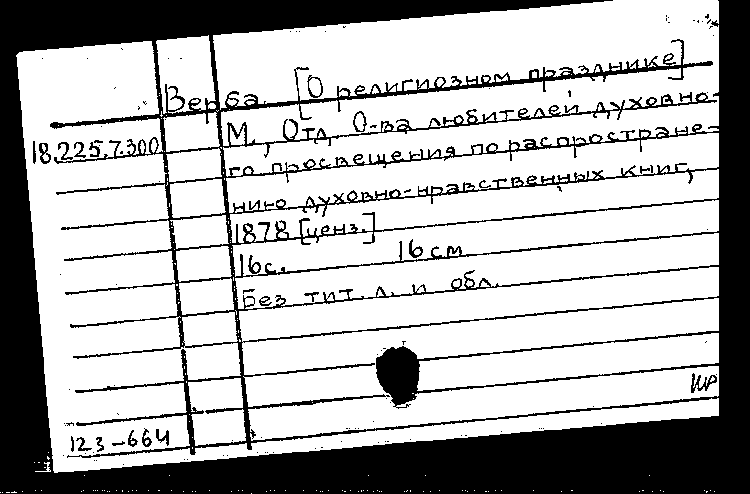 Верба [О религиозном празднике]
18.225.7.300
М., Отд. О-ва любителей духовно-
го просвещения по распростране-
нию духовно-нравственных книг,
1878 [ценз.]
16 с. 16 см
Без тит. л. и обл.
123-664